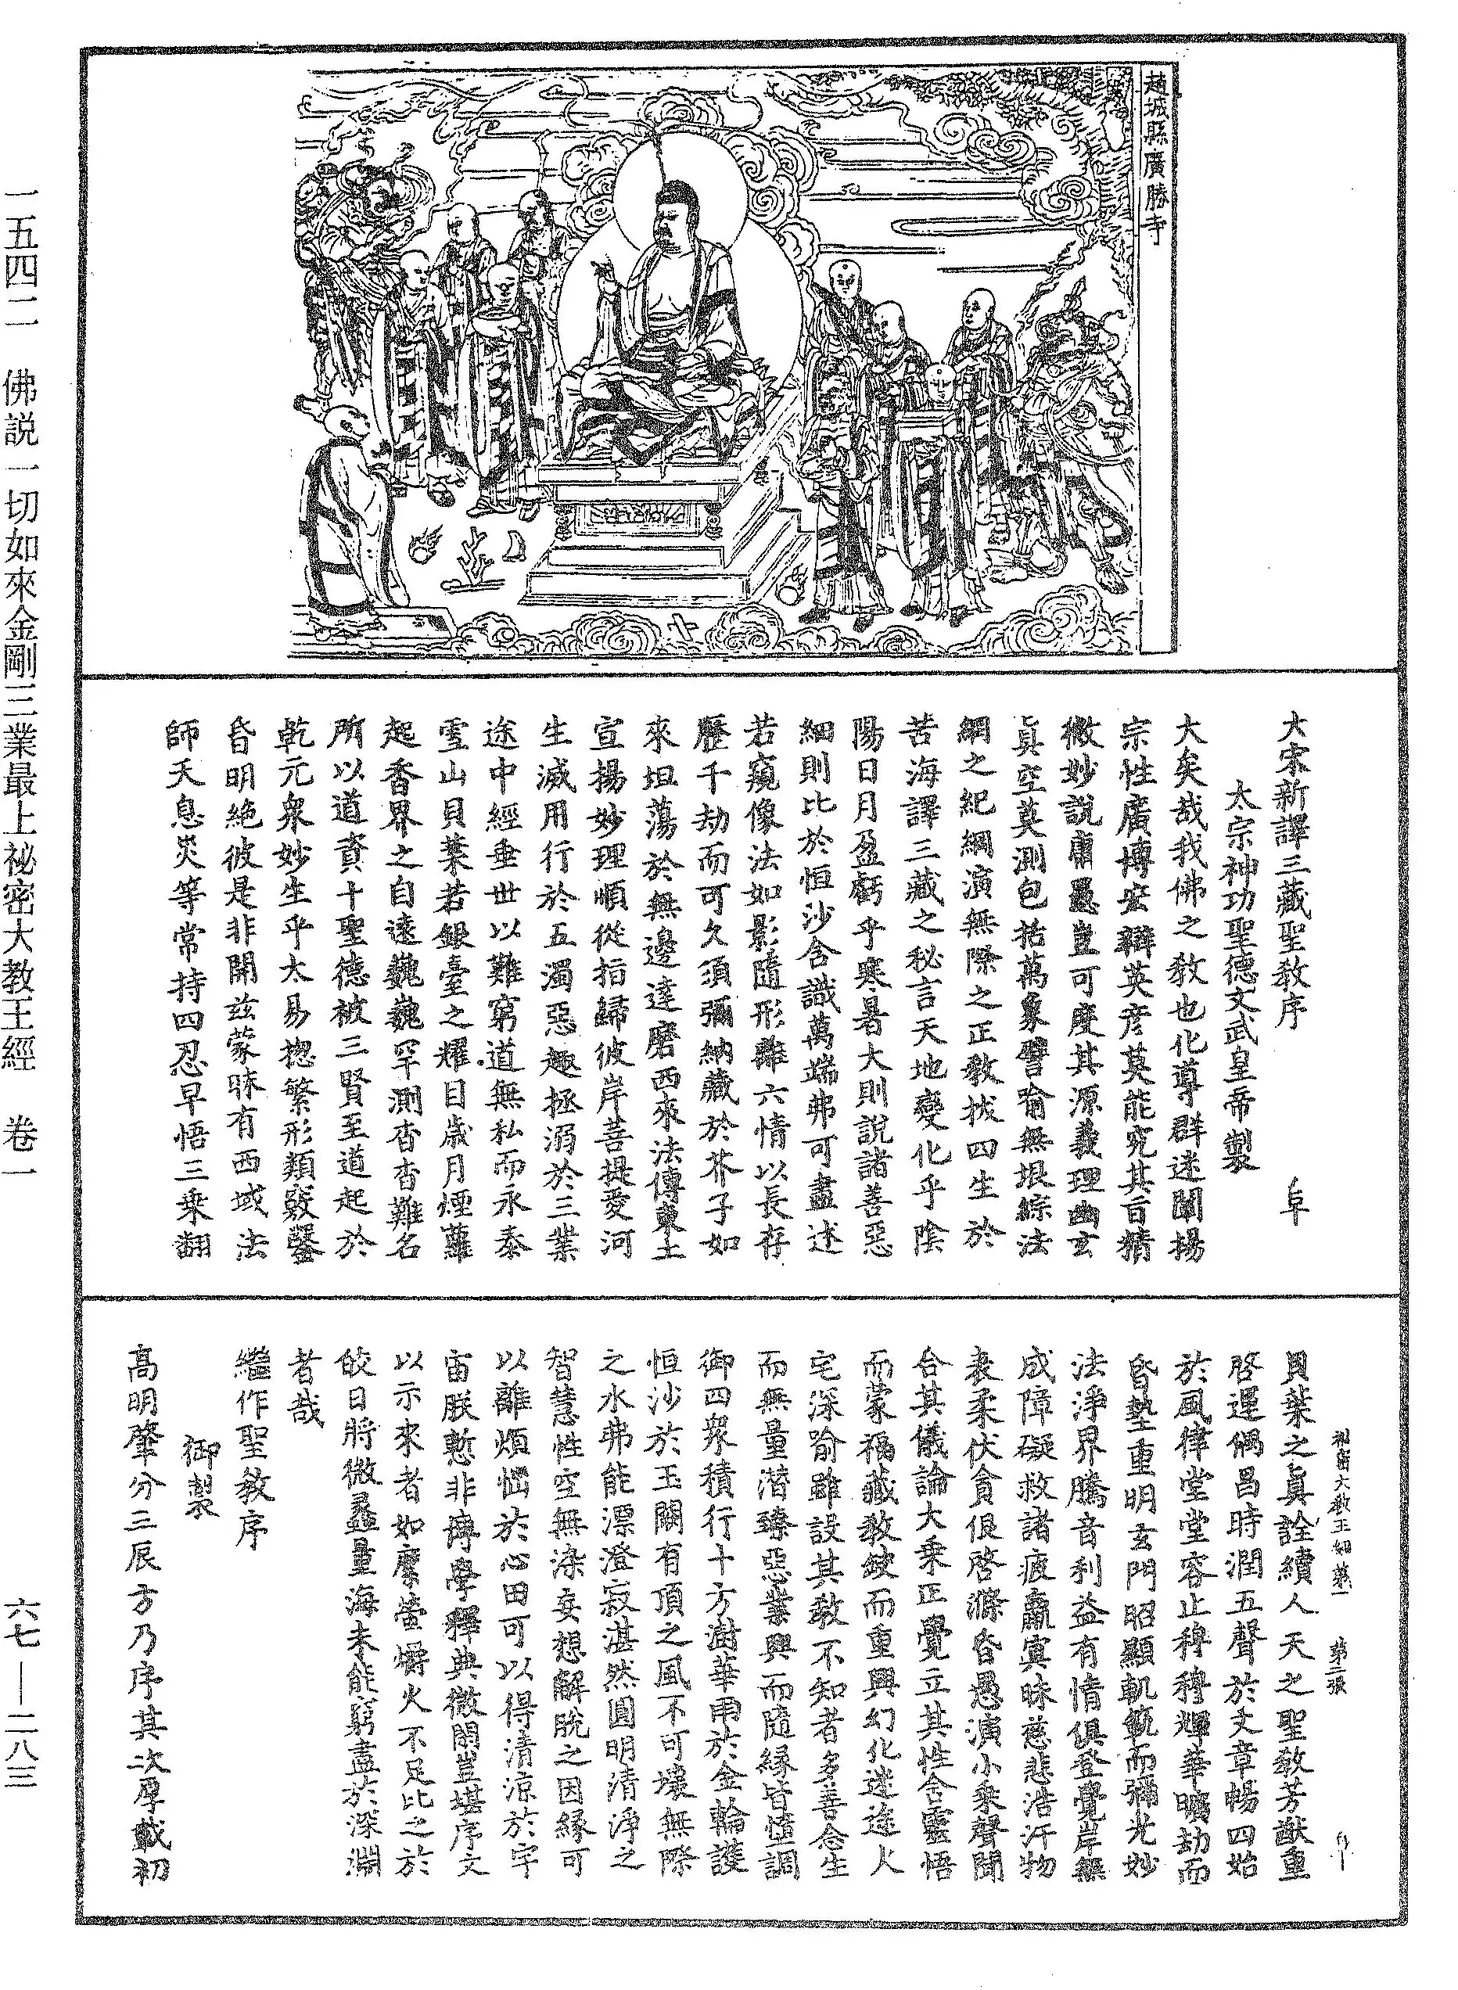 趙城縣廣勝寺
大宋新譯三藏聖教序
太宗神功聖德文武皇帝製
大矣哉我佛之教也化導群迷闡揚
宗性廣博宏辯英彦莫能究其百精
微妙說庸愚豈可度其源義理幽玄
真空莫測包括萬象譬喻無垠綜法
網之紀綱演無際之正教拔四生於
苦海譯三藏之秘言天地變化乎陰
陽日月盈虧乎寒暑大則說諸善惡
細則比於恒沙含識萬端弗可盡述
若窺像法如影隨形離六情以長存
歷千劫而可久須彌納藏於芥子如
來坦蕩於無邊達磨西來法傳東土
宣揚妙理順從指歸彼岸菩提愛河
生滅用行於五濁惡趣拯溺於三業
途中經垂世以難窮道無私而永泰
雪山貝葉若銀臺之耀目歲月煙蘿
起香界之自遠巍巍罕測杳杳難名
所以道資十聖德被三賢至道起於
乾元衆妙生乎太易揔繁形類竅鑿
昏明絶彼是非開兹蒙昧有西域法
師天息災等常持四忍早悟三乘翻
秘密大教王經第一 第二張
貝葉之真詮續人天之聖教芳猷重
啓運偶昌時潤五聲於文章暢四始
於風律堂堂容止穆穆輝華曠劫而
昏墊重明玄門昭顯軌範而彌光妙
法淨界騰音利益有情俱登覺岸無
成障礙救諸疲羸冥昧慈悲浩汗物
表柔伏貪佷啓滌昏愚演小乘聲聞
合其儀論大乘正覺立其性含靈悟
而蒙福藏教缺而重興幻化迷途火
宅深喻雖設其教不知者多善念生
而無量潛臻惡業興而隨緣皆墮調
御四衆積行十方澍華雨於金輪護
恒沙於玉闕有頂之風不可壞無際
之水弗能漂澄寂湛然圓明清淨之
智慧性空無染妄想解脫之因緣可
以離煩惱於心田可以得清涼於宇
宙朕慙非博學釋典微閑豈堪序文
以示來者如縻螢爝火不足比之於
皎日將微蠡量海未能窮盡於深淵
者哉
繼作聖教序
御製
高明肇分三辰方乃序其次厚載初
一五四二 佛説一切如來金剛三業最上祕密大教王經 卷一
六七—二八三